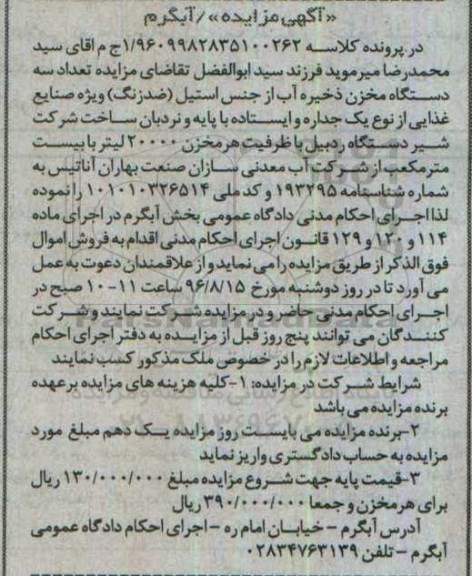 «آگهی مزایده»/آبگرم
در پرونده کلاسه ۱/۹۶۰۹۹۸۲۸۳۵۱۰۰۲۶۲ج م اقای سید
محمدرضا میرموید فرزند سید ابوالفضل تقاضای مزایده تعداد سه
دستگاه مخزن ذخیره آب از جنس استیل (ضدزنگ) ویژه صنایع
غذایی از نوع یک جداره و ایستاده با پایه و نردبان ساخت شرکت
شیر دستگاه ردبیل با ظرفیت هر مخزن ۲۰۰۰۰ لیتر با بیست
مترمکعب از شرکت آب معدنی سازان صنعت بهاران آناتیس به
شماره شناسنامه ۱۹۳۲۹۵ و کد ملی ۱۰۱۰۱۰۳۲۶۵۱۴ را نموده
لذا اجرای احکام مدنی دادگاه عمومی بخش آبگرم در اجرای ماده
۱۱۴ و ۱۲۰ و ۱۲۹ قانون اجرای احکام مدنی اقدام به فروش اموال
فوق الذکر از طریق مزایده را می نماید و از علاقمندان دعوت به عمل
می آورد تا در روز دوشنبه مورخ ۹۶/۸/۱۵ ساعت ۱۱-۱۰ صبح در
اجرای احکام مدنی حاضر و در مزایده شرکت نمایند و شرکت
کنندگان می توانند پنج روز قبل از مزایده به دفتر اجرای احکام
مراجعه و اطلاعات لازم را در خصوص ملک مذکور کسب نمایند
شرایط شرکت در مزایده: ۱-کلیه هزینه های مزایده برعهده
برنده مزایده می باشد
۲-برنده مزایده می بایست روز مزایده یک دهم مبلغ مورد
مزایده به حساب دادگستری واریز نماید
۳-قیمت پایه جهت شروع مزایده مبلغ ۱۳۰/۰۰۰/۰۰۰ ریال
برای هر مخزن و جمعا ۳۹۰/۰۰۰/۰۰۰ ریال
آدرس آبگرم - خیابان امام ره - اجرای احکام دادگاه عمومی
آبگرم - تلفن ۰۲۸۳۴۷۶۳۱۳۹